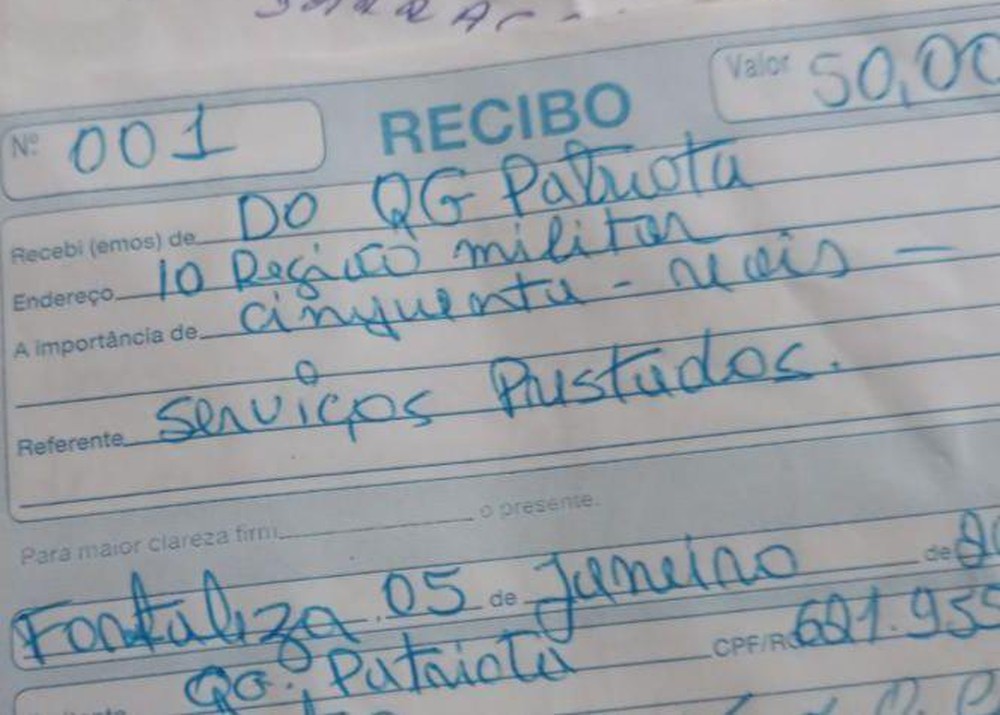 Nº 001 RECIBO Valor 50,00
Recebi (emos) de DO QG Patriota
Endereço 10 Região militar
A importância de cinquenta - reais -
Referente serviços Prestados.
Para maior clareza firm o presente.
Fortaleza, 05 de Janeiro de
QG. Patriota CPF/RG 621.959